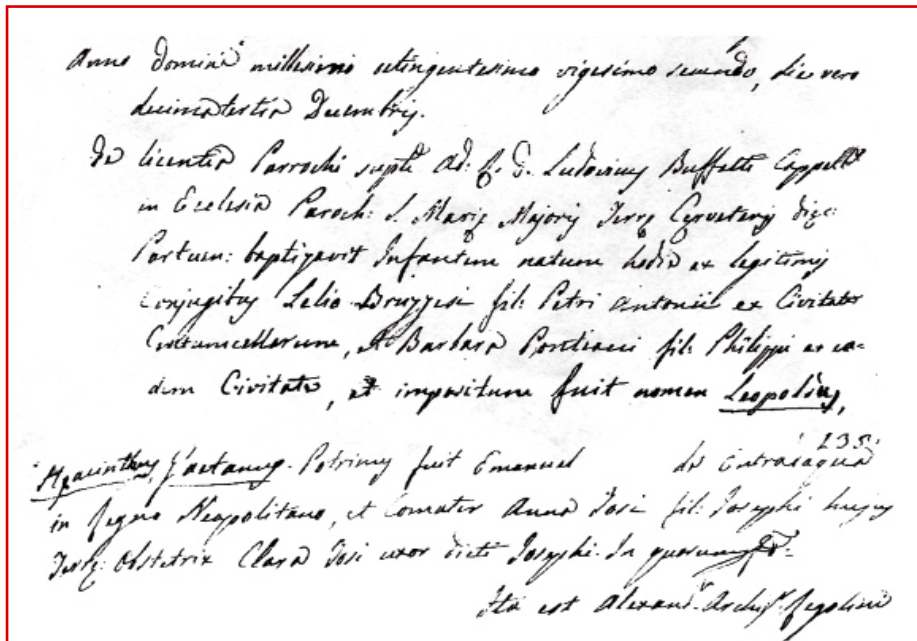 Anno Domini millesimo octingentesimo vigesimo secundo, die vero
decimatertia Decembris.
De licentia Parrochi suptī Ad: R. D. Ludovicus Buffetti Cappell
in Ecclesia Paroch: S. Marię Majoris Terrę Cęrveteris Dięc:
Portuen: baptizavit Infantem natum hodie ex legitimis
Conjugibus Lelio Bruzzesi fil: Petri Antonii ex Civitate
Centumcellarum, et Barbara Pontiani fil: Philippi ex ea-
dem Civitate, et impositum fuit nomen Leopoldus,
235.
Hyacinthus, Gaetanus. Patrinus fuit Emanuel de
in Regno Neapolitano, et Comater Anna Josi fil: Josephi hujus
Terrę: Obstetrix Clara Josi uxor dicti Josephi. In quorum
Ita est Alexand. Archip. Regolini